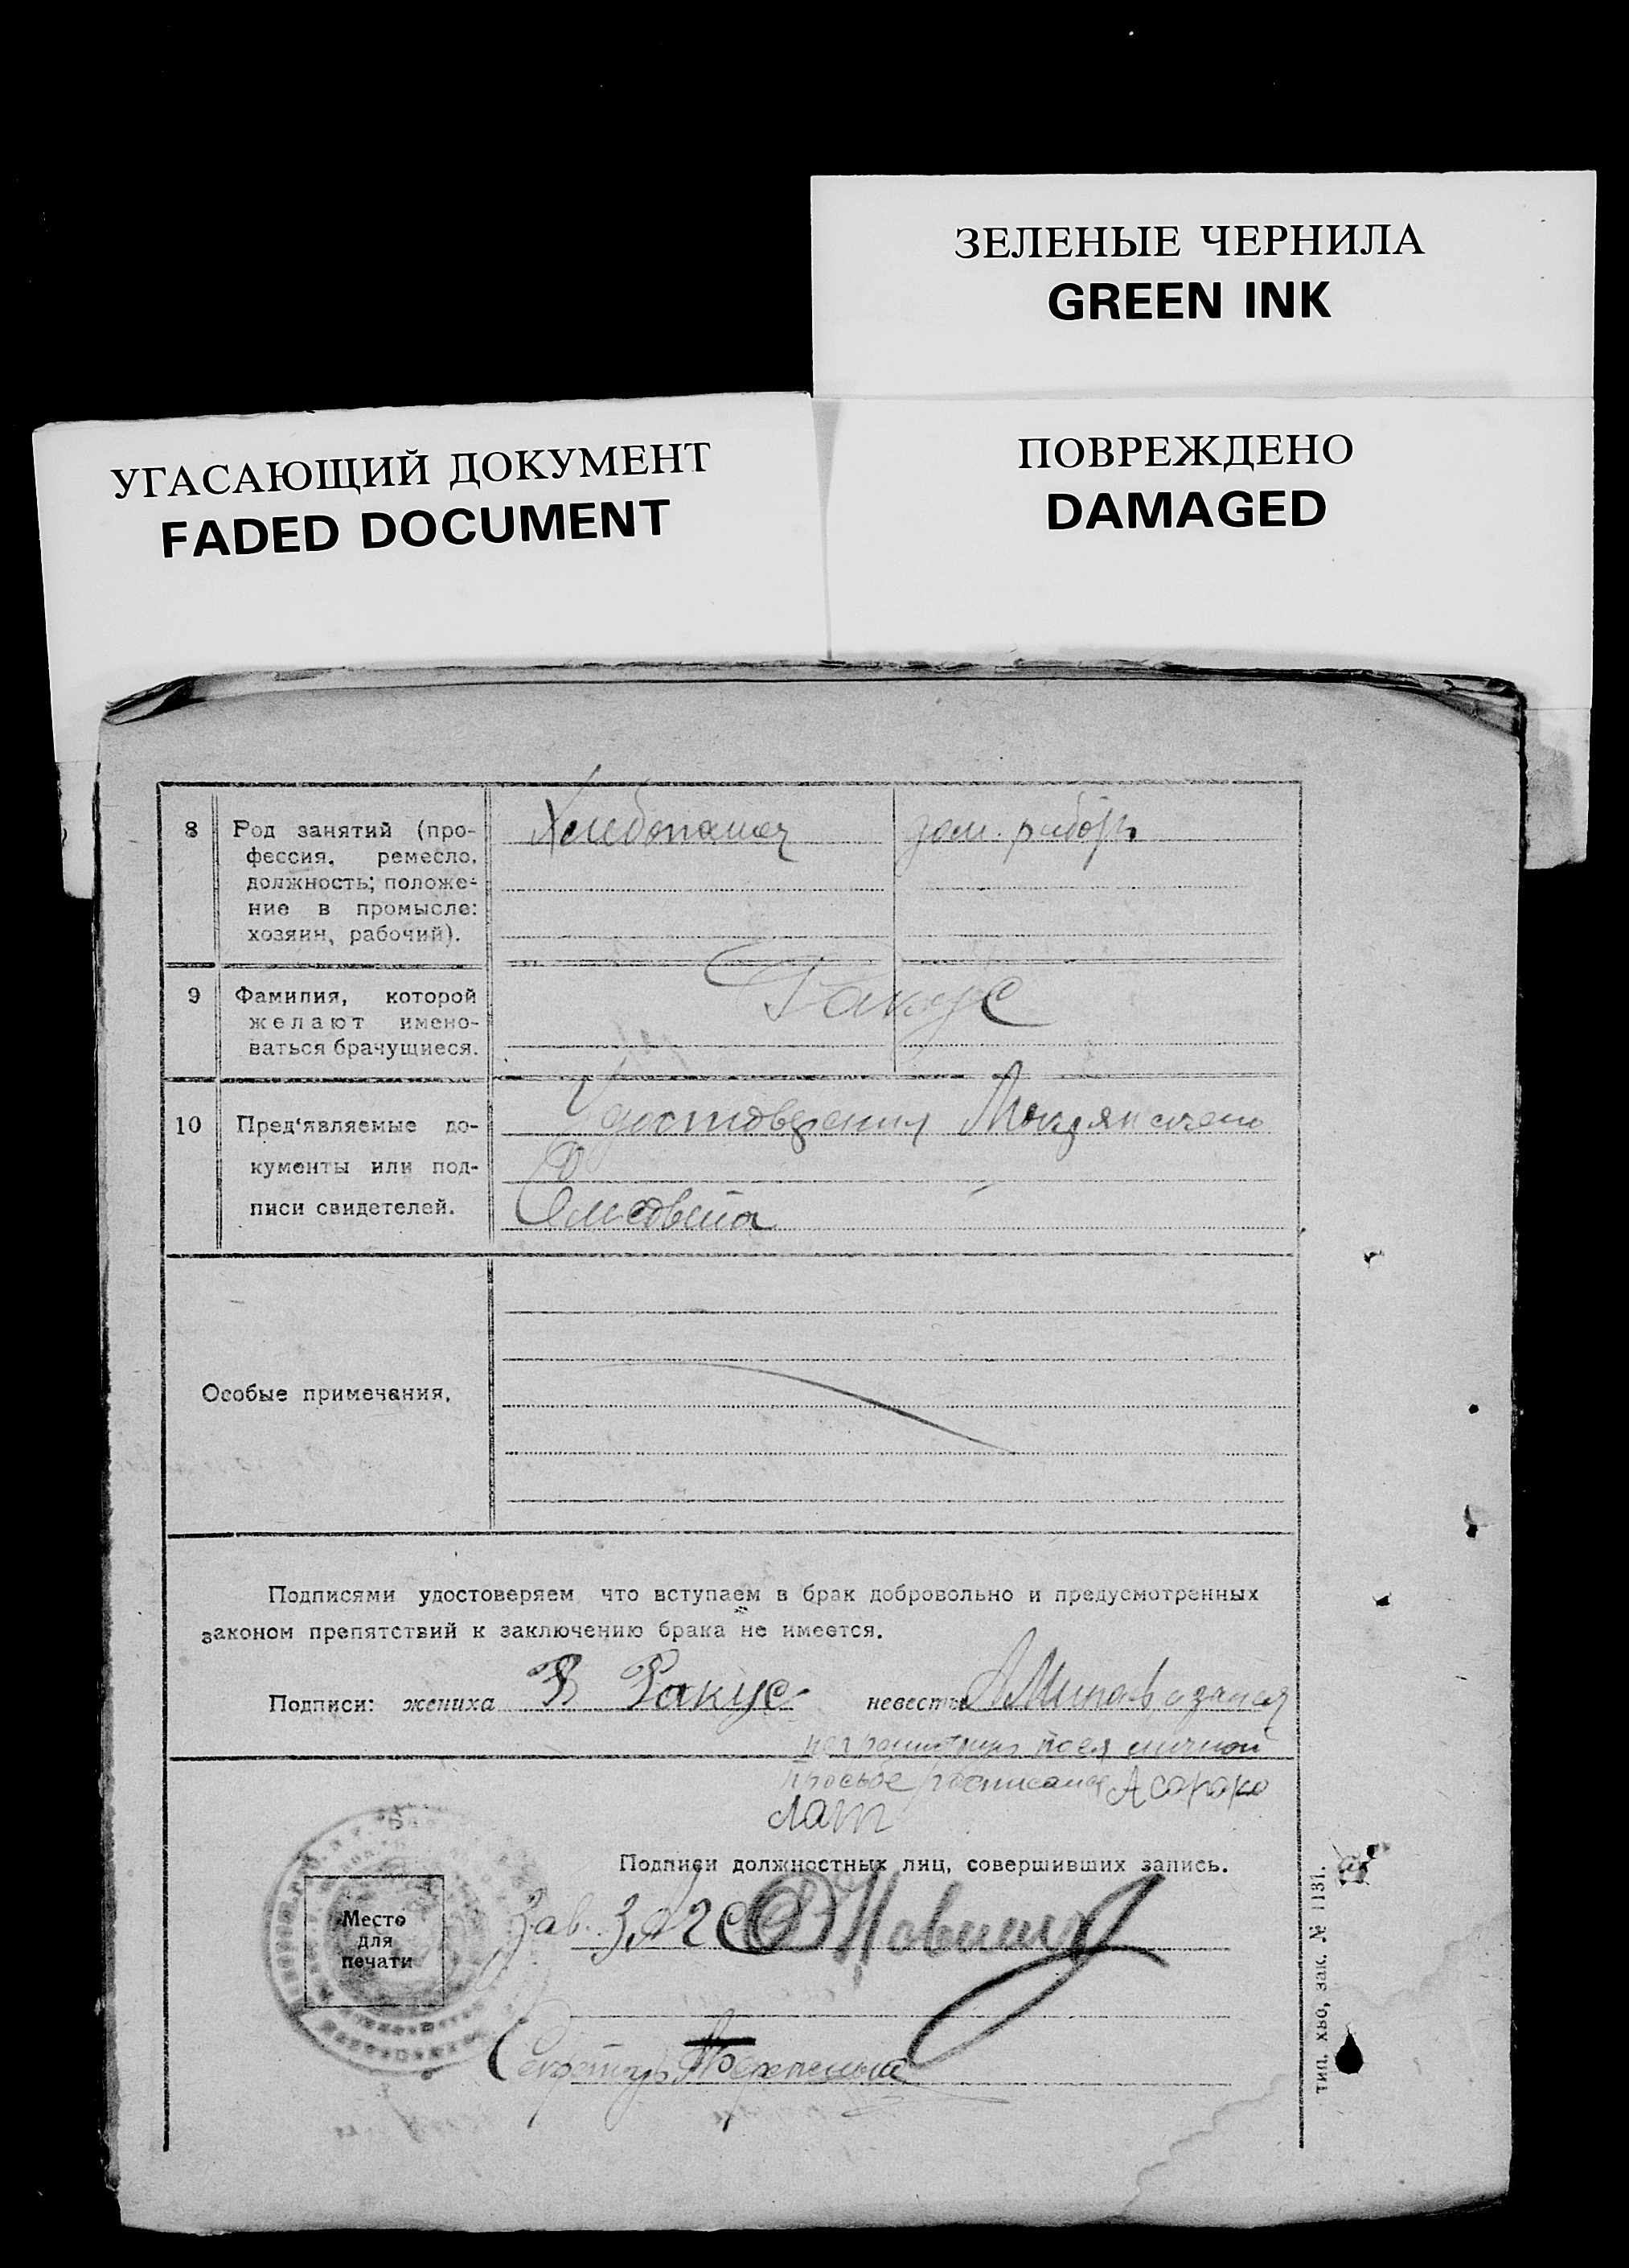 ЗЕЛЕНЫЕ ЧЕРНИЛА
GREEN INK
УГАСАЮЩИЙ ДОКУМЕНТ
FADED DOCUMENT
ПОВРЕЖДЕНО
DAMAGED
8 Род занятий (про-
фессия, ремесло,
должность; положе-
ние в промысле:
хозяин, рабочий).
Хлебопашец
дом. работ
9 Фамилия, которой
желают имено-
ваться брачущиеся.
Ракус
10 Пред'являемые до-
кументы или под-
писи свидетелей.
Удостоверения
Сельсовета
Особые примечания.
Подписями удостоверяем что вступаем в брак добровольно и предусмотренных
законом препятствий к заключению брака не имеется.
Подписи: жениха В Ракус невесты
неграмотную по ея личной
просьбе росписался
Подписи должностных лиц, совершивших запись.
Место
для
печати
Зав. ЗАГС
Секретарь
тип. ХВО, зак. № 1131.